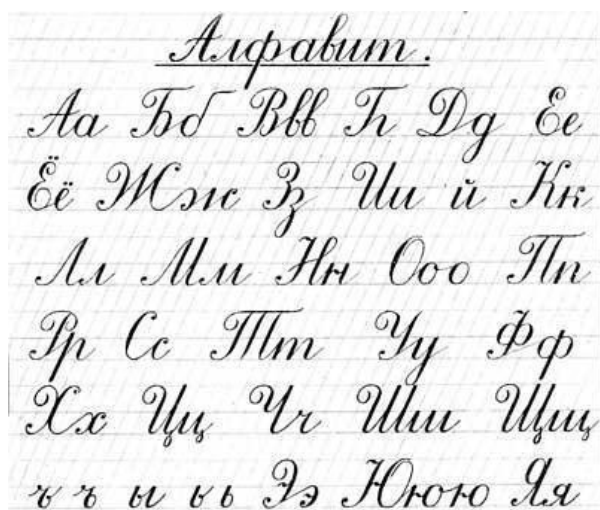 Алфавит.
Аа Бб Ввв Гг Дд Ее
Ёё Жж Зз Ии й Кк
Лл Мм Нн Ооо Пп
Рр Сс Тт Уу Фф
Хх Цц Чч Шш Щщ
ъ ъ ы ь ь Ээ Ююю Яя